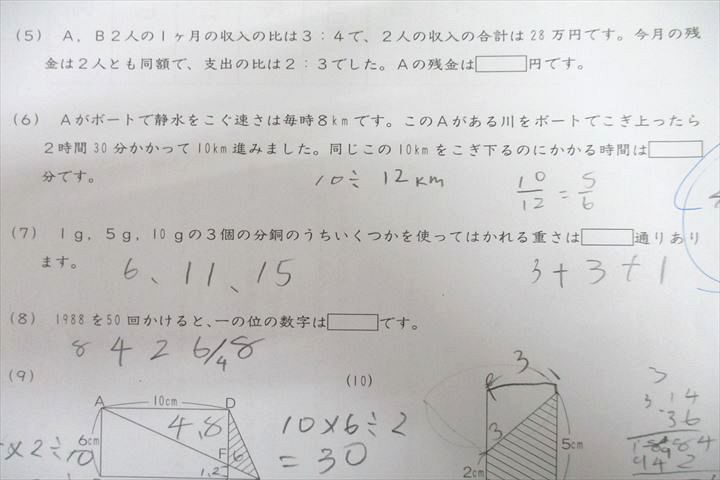 (5) A，B２人の１ヶ月の収入の比は３：４で、２人の収入の合計は28万円です。今月の残
金は２人とも同額で、支出の比は２：３でした。Aの残金は 円です。
(6) Aがボートで静水をこぐ速さは毎時８kmです。このAがある川をボートでこぎ上ったら
２時間30分かかって10km進みました。同じこの10kmをこぎ下るのにかかる時間は
分です。
10÷ 12km
10/12 = 5/6
(7) １g，５g，10gの３個の分銅のうちいくつかを使ってはかれる重さは 通りあり
ます。
6、11、15
3+3+1
(8) 1988を50回かけると、一の位の数字は です。
8 4 2 6/4 8
(9)
(10)
10cm
A
D
4,8
6cm
F
6
1,2
×2÷
10
10×6÷2
=30
3
3
5cm
2cm
3
3 14
36
1884
942